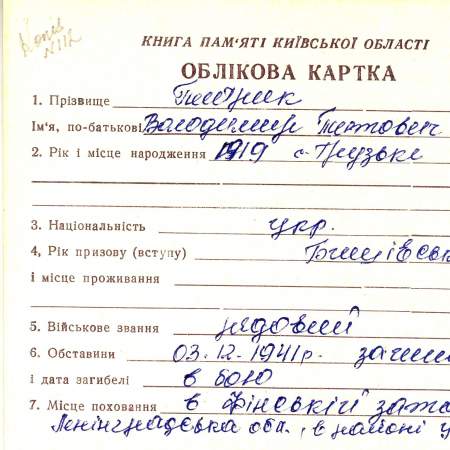 Копія
N 112
КНИГА ПАМ'ЯТІ КИЇВСЬКОЇ ОБЛАСТІ
ОБЛІКОВА КАРТКА
1. Прізвище
Ім'я, по-батькові Володимир Титович
2. Рік і місце народження 1919 с.
3. Національність укр.
4, Рік призову (вступу)
і місце проживання
5. Військове звання рядовий
6. Обставини 03.12.1941р. заги
і дата загибелі в бою
7. Місце поховання в Фінській зато
Ленінградська обл., в районі